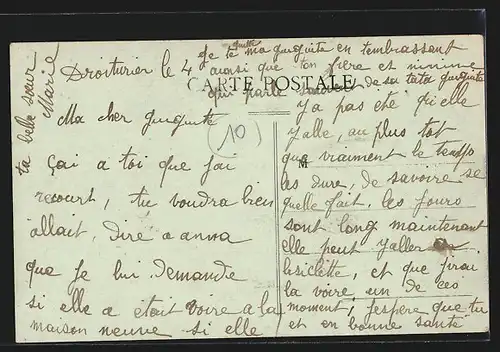 Droiturier le 4
CARTE POSTALE
Ma cher guiguite
(10)
Çai a toi que jai
recourt, tu voudra bien
allait, dire a anna
que je lui demande
si elle a etait voire a la
maison neuve si elle
y a pas été qu'elle
y alle, au plus tot
que vraiment le temps
M
les dure, de savoire se
quelle fait. les jours
sont long maintenant
elle peut y aller
bisiclette, et que jirai
la voire un de ces
moment, jespere que tu
et en bonne santé
Je te quitte ma guiguite en tembrassant
ainsi que ton frere et
qui parle de sa tata guiguite
ta belle sœur
Marie